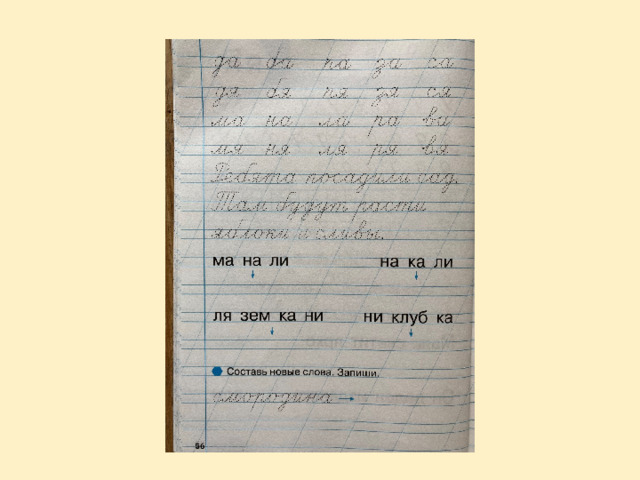 да ба па за са
дя бя пя зя ся
ма на ла ра ва
мя ня ля ря вя
Ребята посадили сад.
Там будут расти
яблоки и сливы.
ма на ли на ка ли
ля зем ка ни ни клуб ка
Составь новые слова. Запиши.
смородина →
56